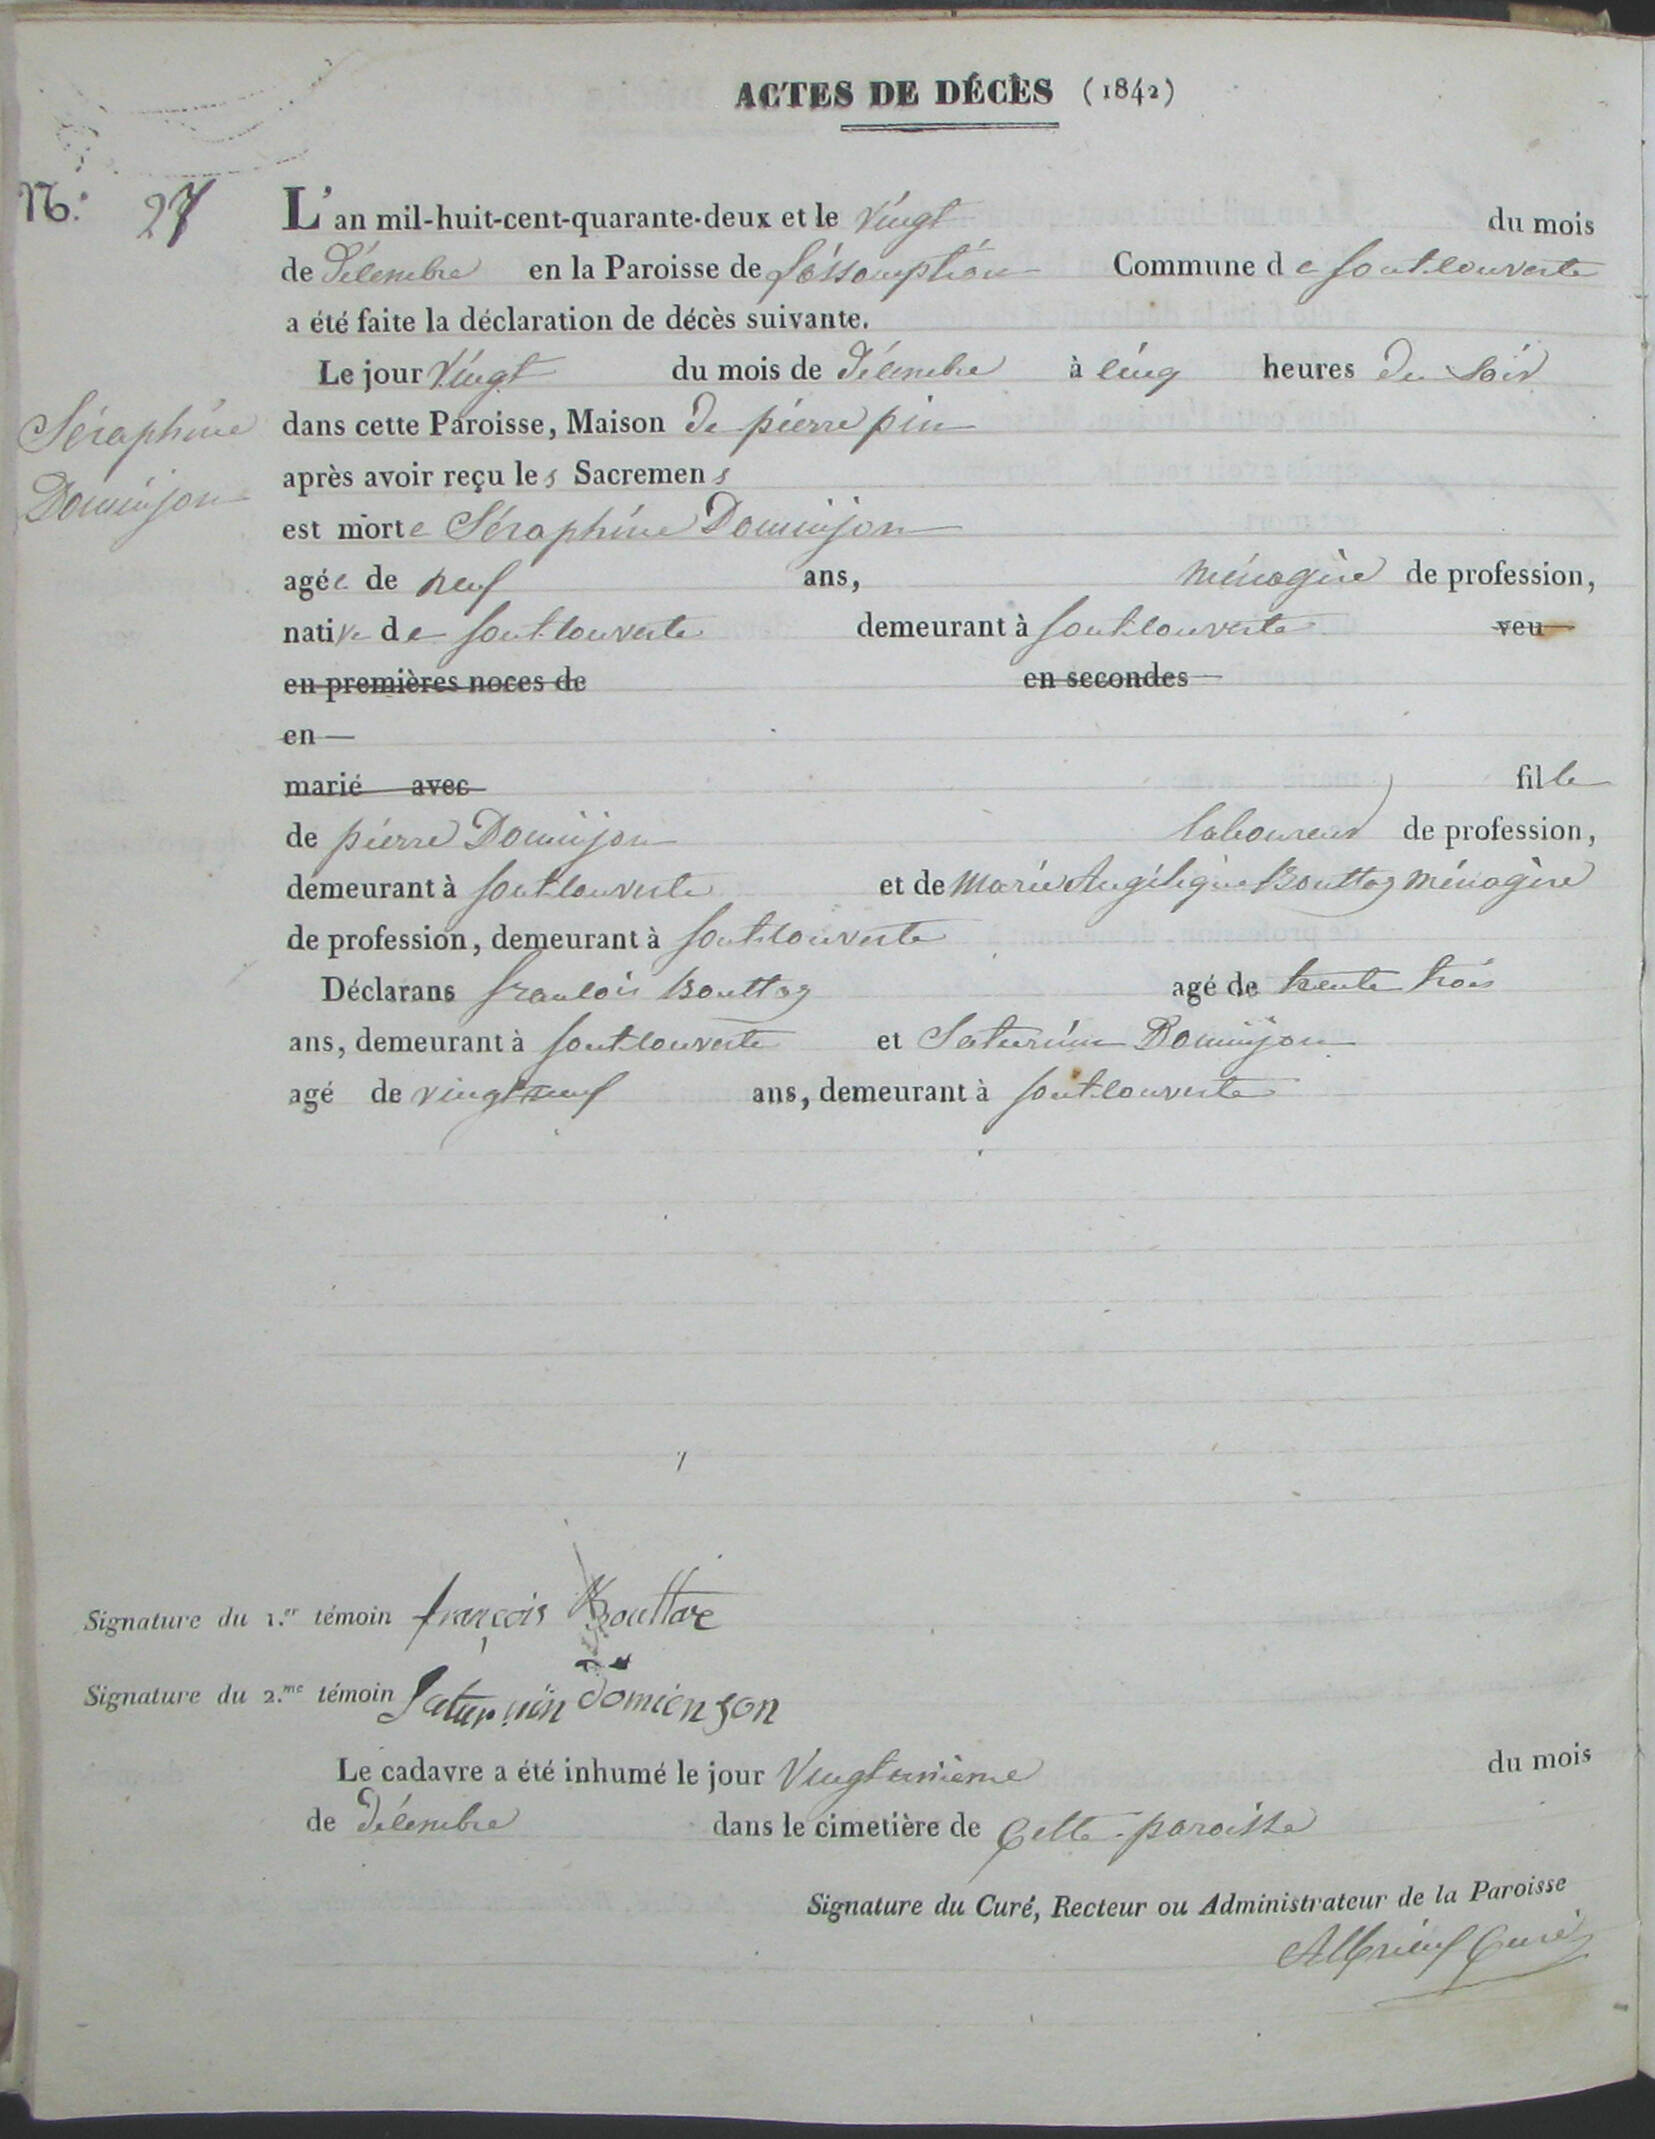 ACTES DE DÉCÈS (1842)
N.º 27
L'an mil-huit-cent-quarante-deux et le vingt du mois
de décembre en la Paroisse de l'assomption Commune de Pontcouverte
a été faite la déclaration de décès suivante.
Le jour vingt du mois de décembre à cinq heures du soir
Séraphine
Dominjon
dans cette Paroisse, Maison de pierre pin
après avoir reçu les Sacremens
est morte Séraphine Dominjon
agée de neuf ans, ménagère de profession,
native de fontcouverte demeurant à fontcouverte veu
en premières noces de en secondes
en
marié avec fille
de pierre Dominjon laboureur de profession,
demeurant à fontcouverte et de Marie Angélique Bouttaz ménagère
de profession, demeurant à fontcouverte
Déclarans françois Bouttaz agé de trente trois
ans, demeurant à fontcouverte et Saturnin Dominjon
agé de vingt neuf ans, demeurant à fontcouverte
Signature du 1.er témoin françois Bouttaz
Signature du 2.me témoin Saturnin domienjon
Le cadavre a été inhumé le jour vingt unième du mois
de décembre dans le cimetière de cette paroisse
Signature du Curé, Recteur ou Administrateur de la Paroisse
Curé